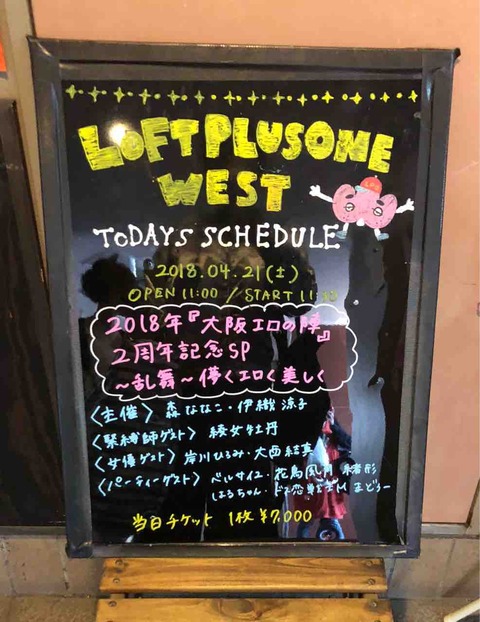 LOFT PLUSONE
WEST
TODAYS SCHEDULE
2018.04.21(土)
OPEN 11:00 / START 11:
2018年『大阪エロの陣』
2周年記念SP
～乱舞～儚くエロく美しく
〈主催〉 森ななこ・伊織涼子
〈緊縛師ゲスト〉 綾女牡丹
〈女優ゲスト〉 岸川ひろみ・大西結真
〈パーティーゲスト〉 ベルサイユ・花鳥風月 緒形
はるちゃん・ M まどぅー
当日チケット 1枚 ¥7,000